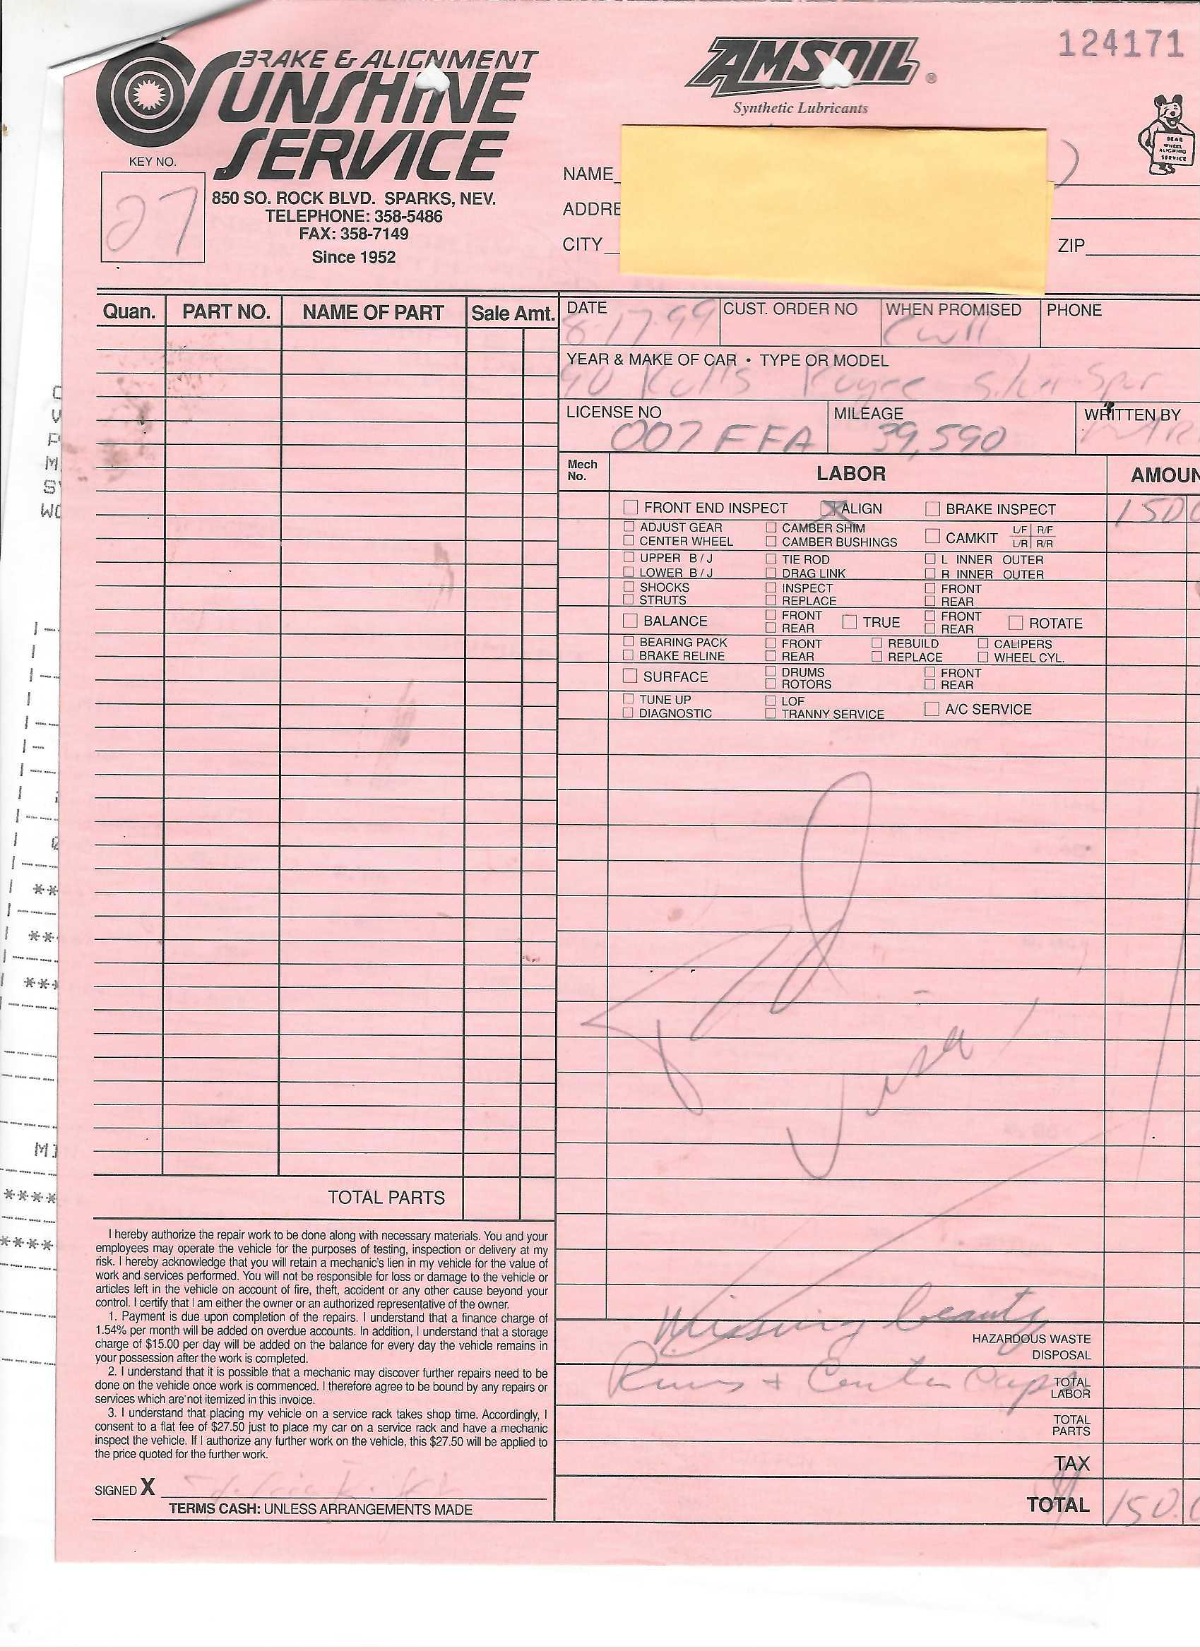 BRAKE & ALIGNMENT
SUNSHINE
SERVICE
850 SO. ROCK BLVD. SPARKS, NEV.
TELEPHONE: 358-5486
FAX: 358-7149
Since 1952
KEY NO.
27
AMSOIL®
Synthetic Lubricants
124171
BEAR
WHEEL
ALIGNING
SERVICE
NAME
ADDRE
CITY
ZIP
Quan. PART NO. NAME OF PART Sale Amt.
TOTAL PARTS
DATE CUST. ORDER NO WHEN PROMISED PHONE
8-17-99
YEAR & MAKE OF CAR • TYPE OR MODEL
90 Rolls Royce Silver Spur
LICENSE NO MILEAGE WRITTEN BY
007 FFA 39,590
Mech No. LABOR AMOUN
FRONT END INSPECT ALIGN BRAKE INSPECT 150
ADJUST GEAR CAMBER SHIM
CENTER WHEEL CAMBER BUSHINGS CAMKIT L/F R/F L/R R/R
UPPER B/J TIE ROD L INNER OUTER
LOWER B/J DRAG LINK R INNER OUTER
SHOCKS INSPECT FRONT
STRUTS REPLACE REAR
BALANCE FRONT REAR TRUE FRONT REAR ROTATE
BEARING PACK FRONT REBUILD CALIPERS
BRAKE RELINE REAR REPLACE WHEEL CYL.
SURFACE DRUMS ROTORS FRONT REAR
TUNE UP LOF
DIAGNOSTIC TRANNY SERVICE A/C SERVICE
Visa
Missing beauty
Rims + Center Caps
HAZARDOUS WASTE
DISPOSAL
TOTAL
LABOR
TOTAL
PARTS
TAX
TOTAL 150.0
I hereby authorize the repair work to be done along with necessary materials. You and your
employees may operate the vehicle for the purposes of testing, inspection or delivery at my
risk. I hereby acknowledge that you will retain a mechanic's lien in my vehicle for the value of
work and services performed. You will not be responsible for loss or damage to the vehicle or
articles left in the vehicle on account of fire, theft, accident or any other cause beyond your
control. I certify that I am either the owner or an authorized representative of the owner.
1. Payment is due upon completion of the repairs. I understand that a finance charge of
1.54% per month will be added on overdue accounts. In addition, I understand that a storage
charge of $15.00 per day will be added on the balance for every day the vehicle remains in
your possession after the work is completed.
2. I understand that it is possible that a mechanic may discover further repairs need to be
done on the vehicle once work is commenced. I therefore agree to be bound by any repairs or
services which are not itemized in this invoice.
3. I understand that placing my vehicle on a service rack takes shop time. Accordingly, I
consent to a flat fee of $27.50 just to place my car on a service rack and have a mechanic
inspect the vehicle. If I authorize any further work on the vehicle, this $27.50 will be applied to
the price quoted for the further work.
SIGNED X
TERMS CASH: UNLESS ARRANGEMENTS MADE